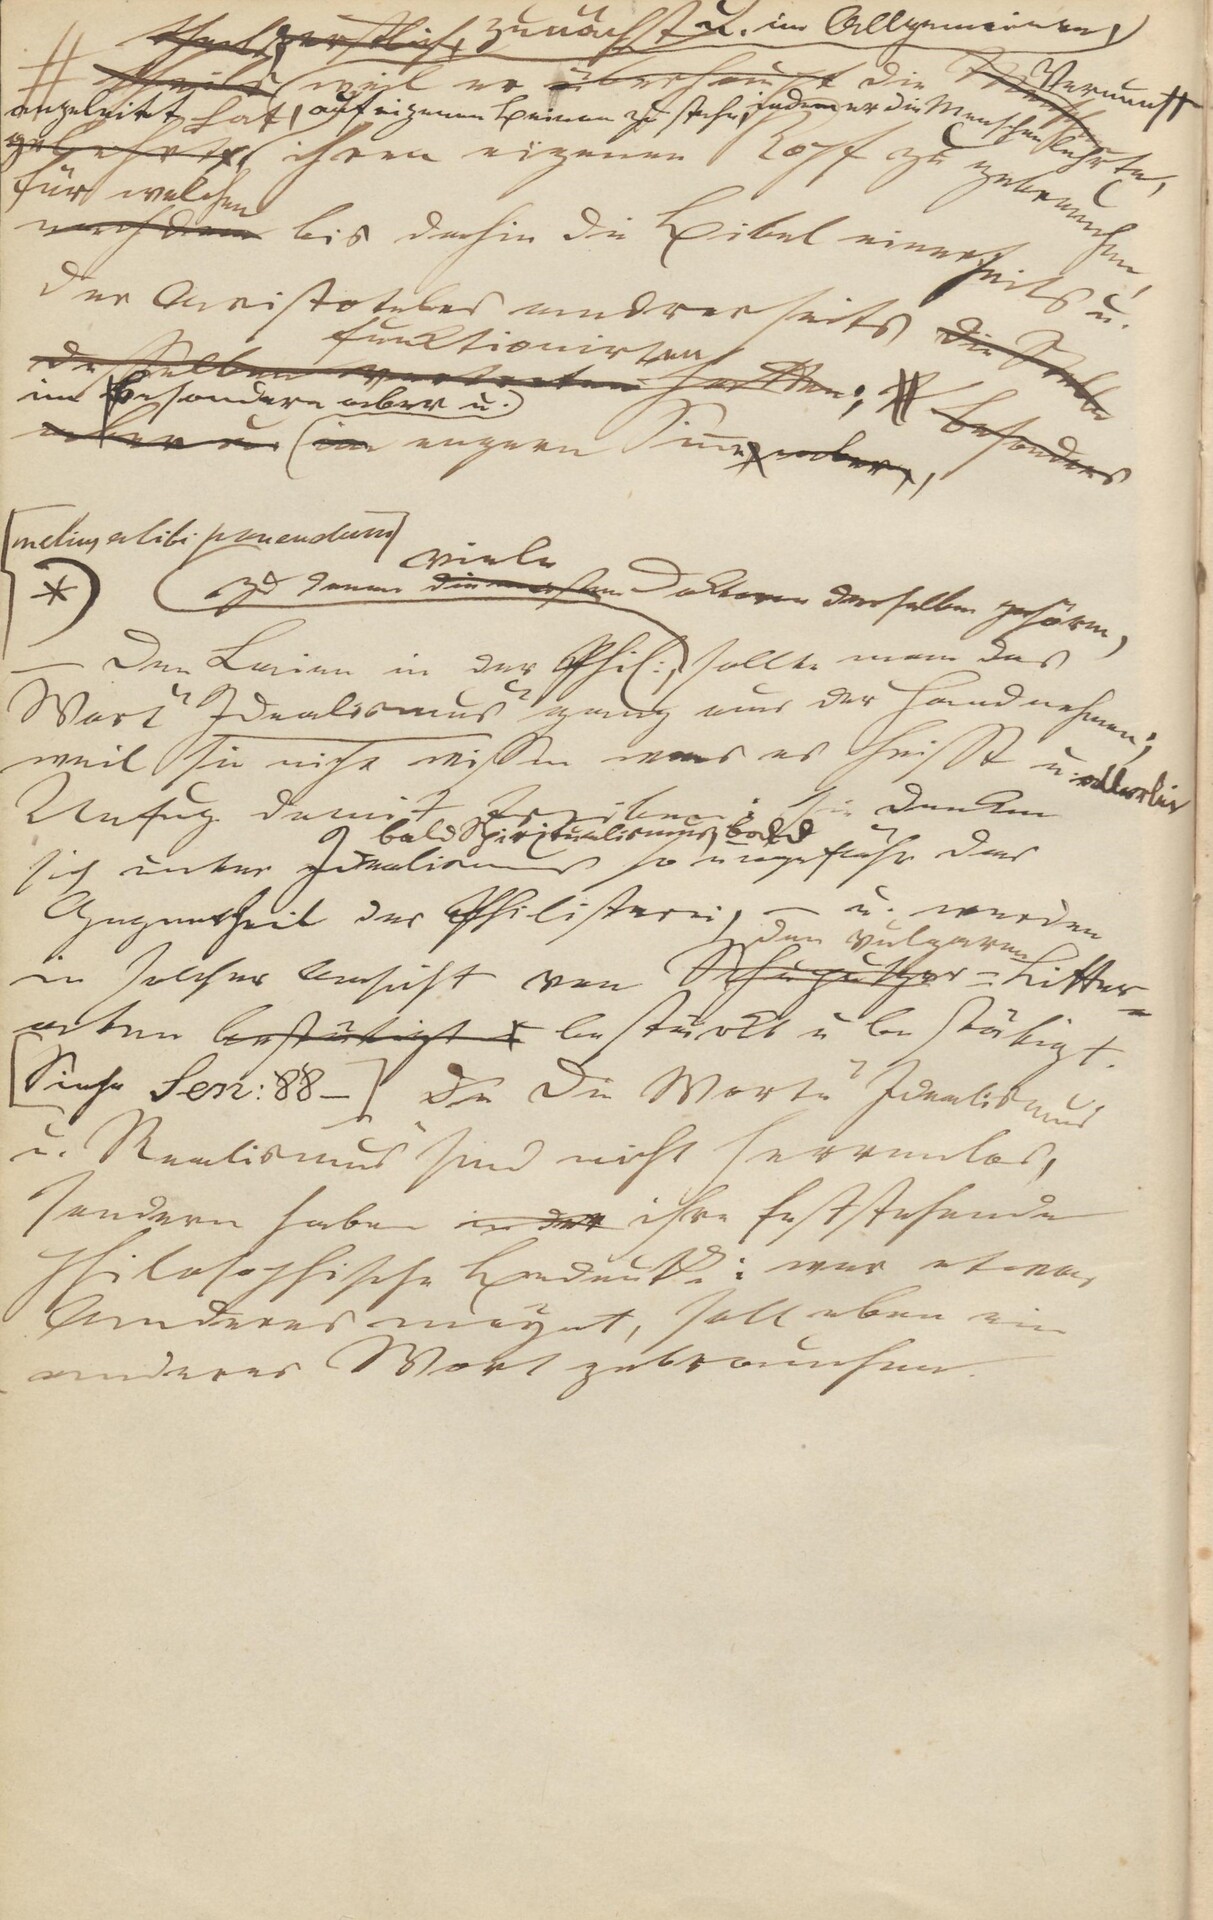 theils erstlich, zunächst u. im Allgemeinen,
# theils weil er überhaupt die Vernunft
angeleitet hat, auf eigenen Beinen zu stehn, indem er die Menschen lehrte,
gelehrt, ihren eigenen Kopf zu gebrauchen,
für welchen
nachdem bis dahin die Bibel einerseits u.
der Aristoteles andrerseits die Stelle
funktionirten
desselben vertreten hatten; # besonders
im Besondern aber u.
aber u. im engern Sinne aber,
[melius alibi ponendum]
viele
*) zu denen die meisten Doktoren derselben gehören,
— Den Laien in der Phil: sollte man das
Wort "Idealismus" ganz aus der Hand nehmen;
weil sie nicht wissen was es heißt u. allerlei
Unfug damit treiben: sie denken
bald Spiritualismus, bald
sich unter Idealismus so ungefähr das
Gegentheil der Philisterei, — u. werden
den vulgaren
in solcher Ansicht von Litter=
aten bestätigt bestärkt u bestätigt.
[Siehe Sen: 88 —] Die Worte "Idealismus
u. Realismus" sind nicht herrenlos,
sondern haben in der ihre feststehende
philosophische Bedeutg: wer etwas
Anderes meynt, soll eben ein
anderes Wort gebrauchen.